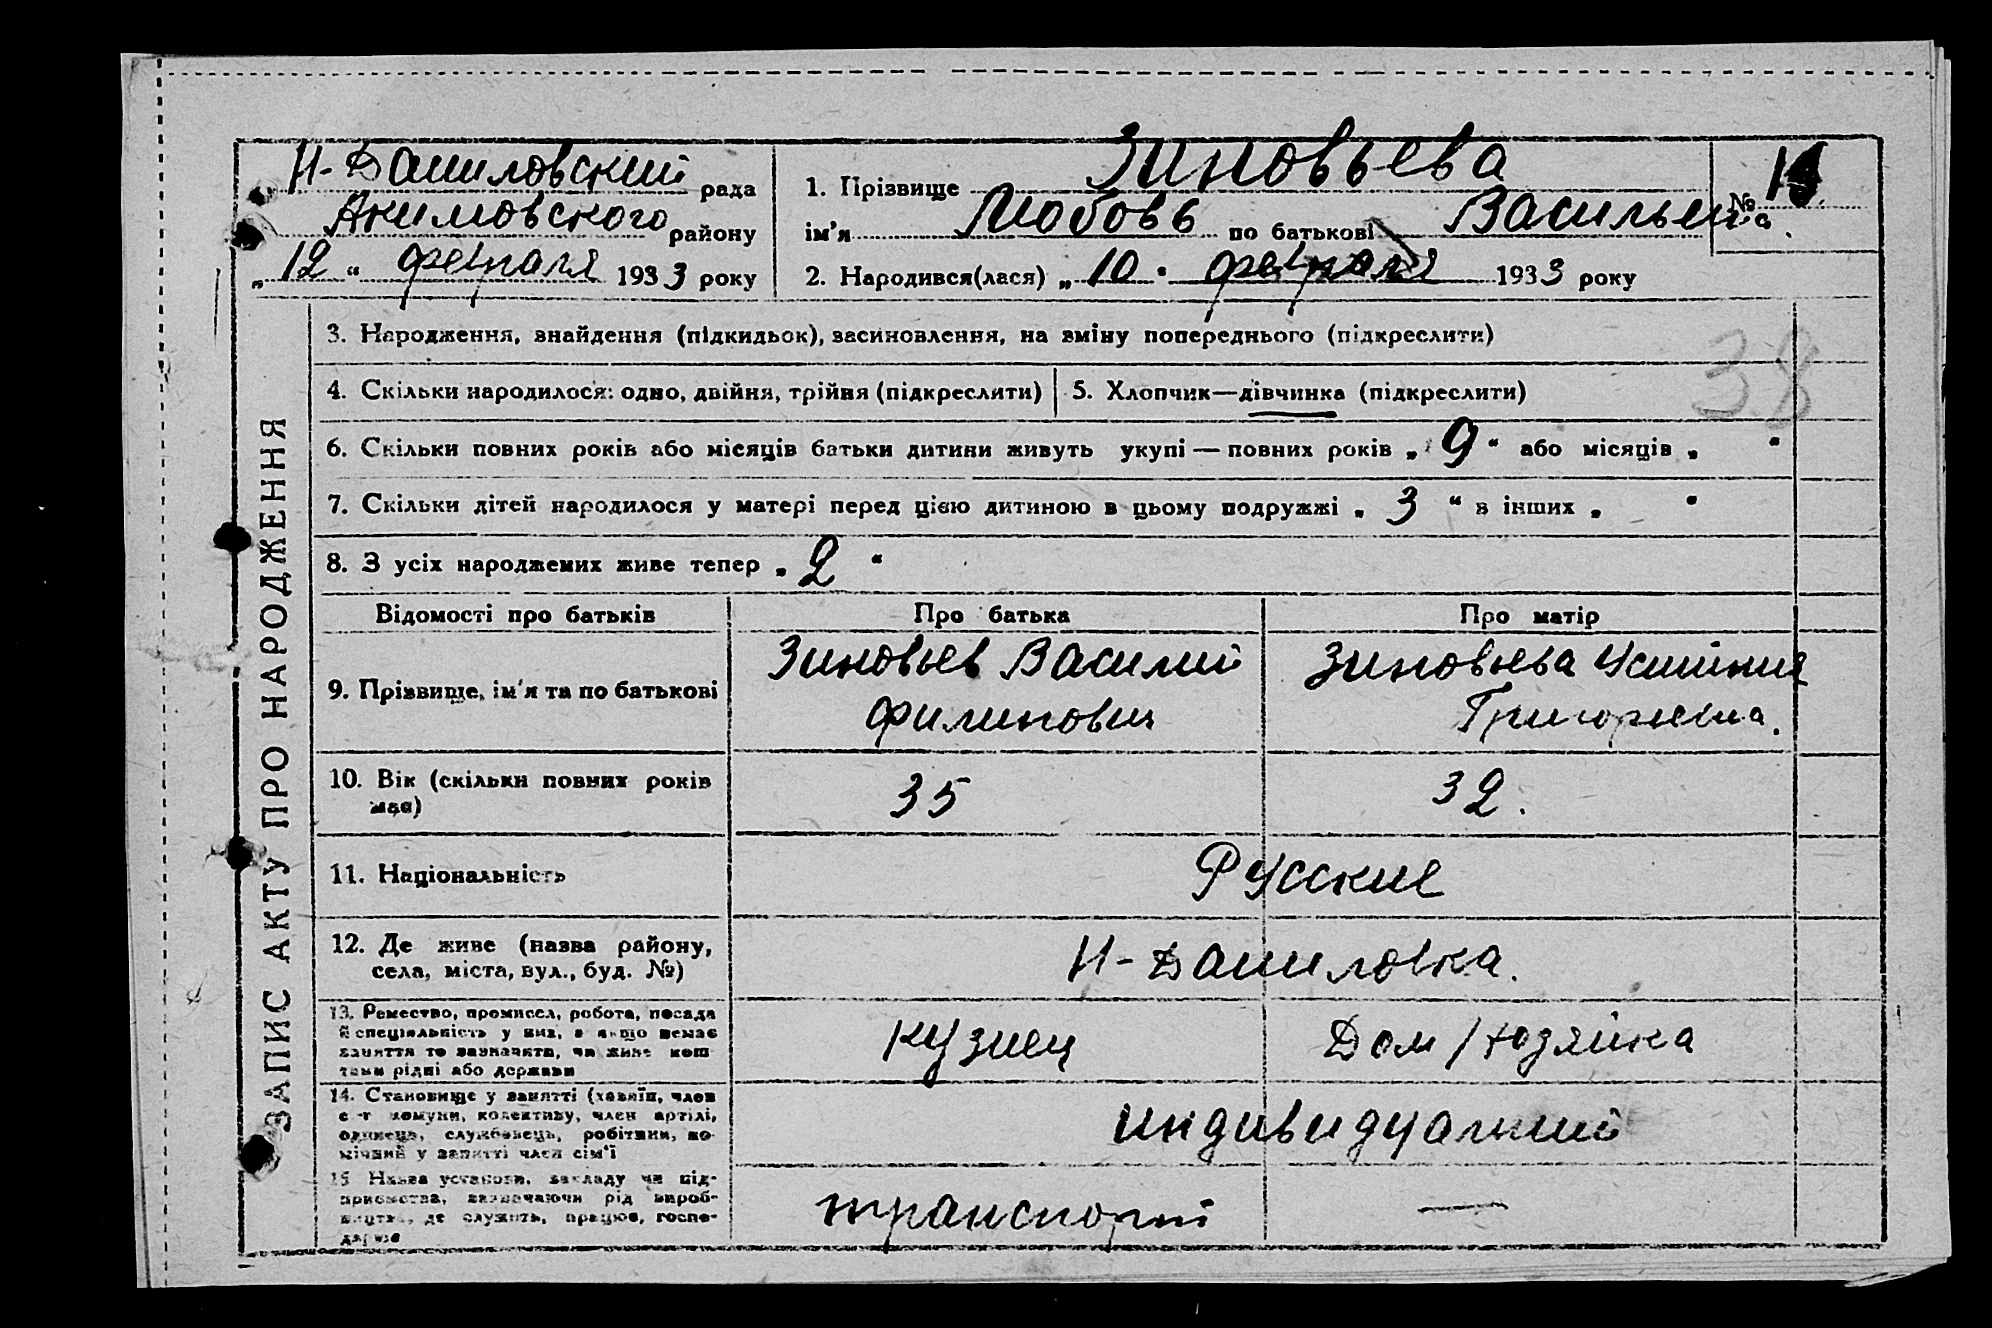 Н-Даниловский рада
Акимовского району
„12“ февраля 1933 року
1. Прізвище Зиновьева
№
ім'я Любовь по батькові Васильевна.
2. Народився(лася) „10“ февраля 1933 року
38
ЗАПИС АКТУ ПРО НАРОДЖЕННЯ
3. Народження, знайдення (підкидьок), засиновлення, на зміну попереднього (підкреслити)
4. Скільки народилося: одно, двійня, трійня (підкреслити)
5. Хлопчик—дівчинка (підкреслити)
6. Скільки повних років або місяців батьки дитини живуть укупі — повних років „9“ або місяців „ “
7. Скільки дітей народилося у матері перед цією дитиною в цьому подружжі „3“ в інших „ “
8. З усіх народжених живе тепер „2“
Відомості про батьків
Про батька
Про матір
9. Прізвище, ім'я та по батькові
Зиновьев Василий
Филипович
Зиновьева
Григорьевна.
10. Вік (скільки повних років
має)
35
32.
11. Національність
Русские
12. Де живе (назва району,
села, міста, вул., буд. №)
Н-Даниловка.
13. Ремество, промисел, робота, посада
й спеціяльність у них, а якщо немає
заняття то зазначити, чи живе кош-
тами рідні або держави
кузнец
Дом/хозяйка
14. Становище у занятті (хазяїн, член
с-г комуни, колективу, член артілі,
одинець, службовець, робітник, по-
мічний у занятті член сім'ї
индивидуальний
15. Назва установи, закладу чи під-
приємства, зазначаючи рід вироб-
ництва, де служить, працює, госпо-
дарює
транспорт
—